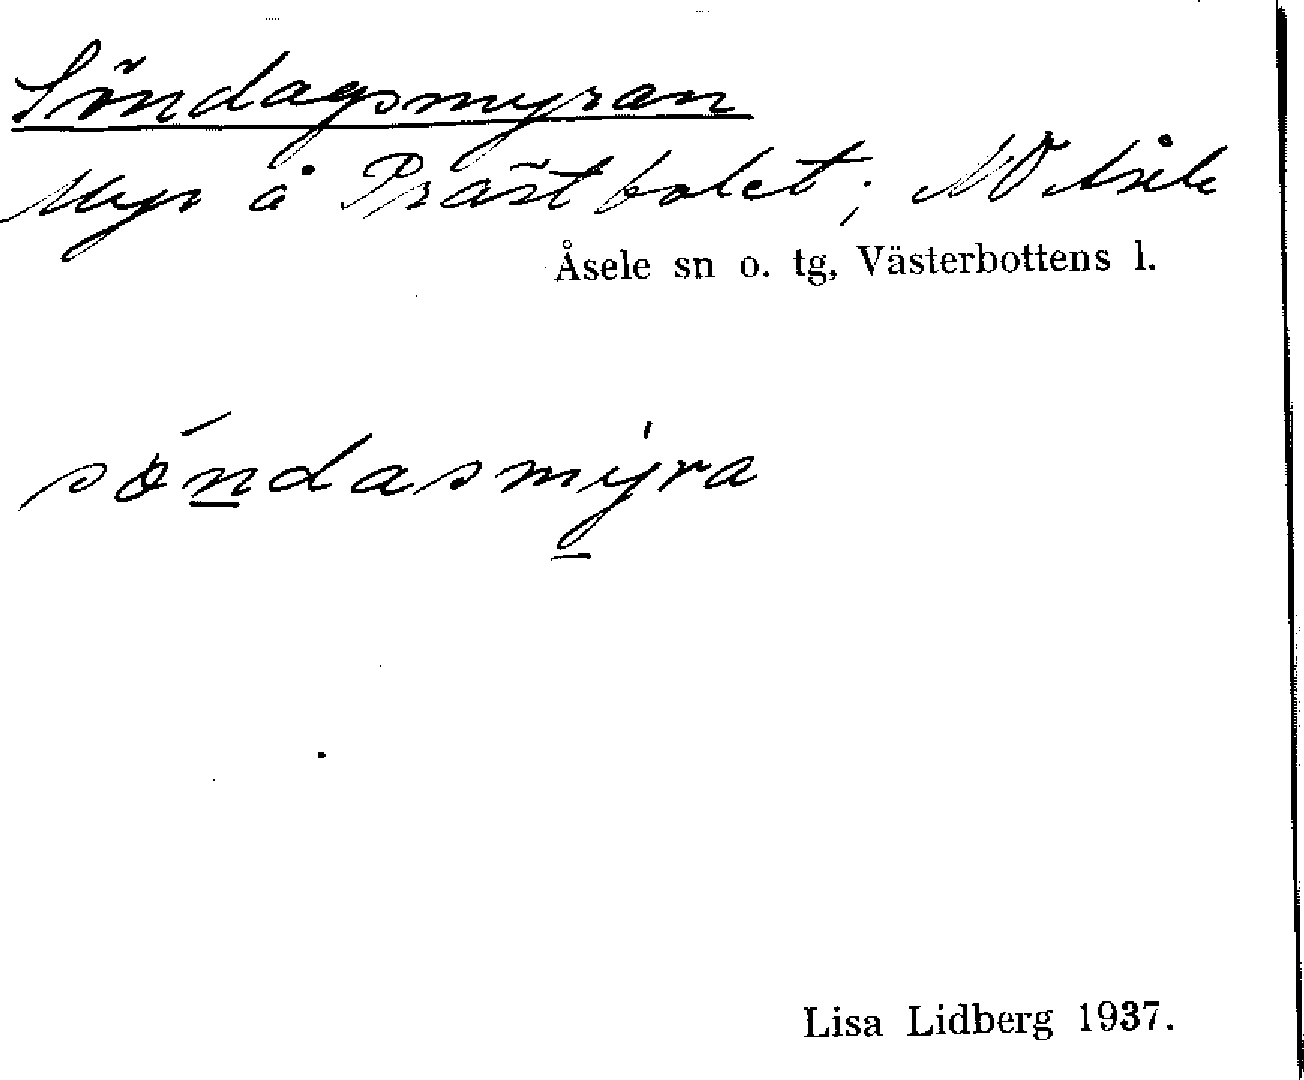 Söndagsmyran
Myr å Prästbolet; NV Åsele
Åsele sn o. tg, Västerbottens l.
söndasmyra
Lisa Lidberg 1937.